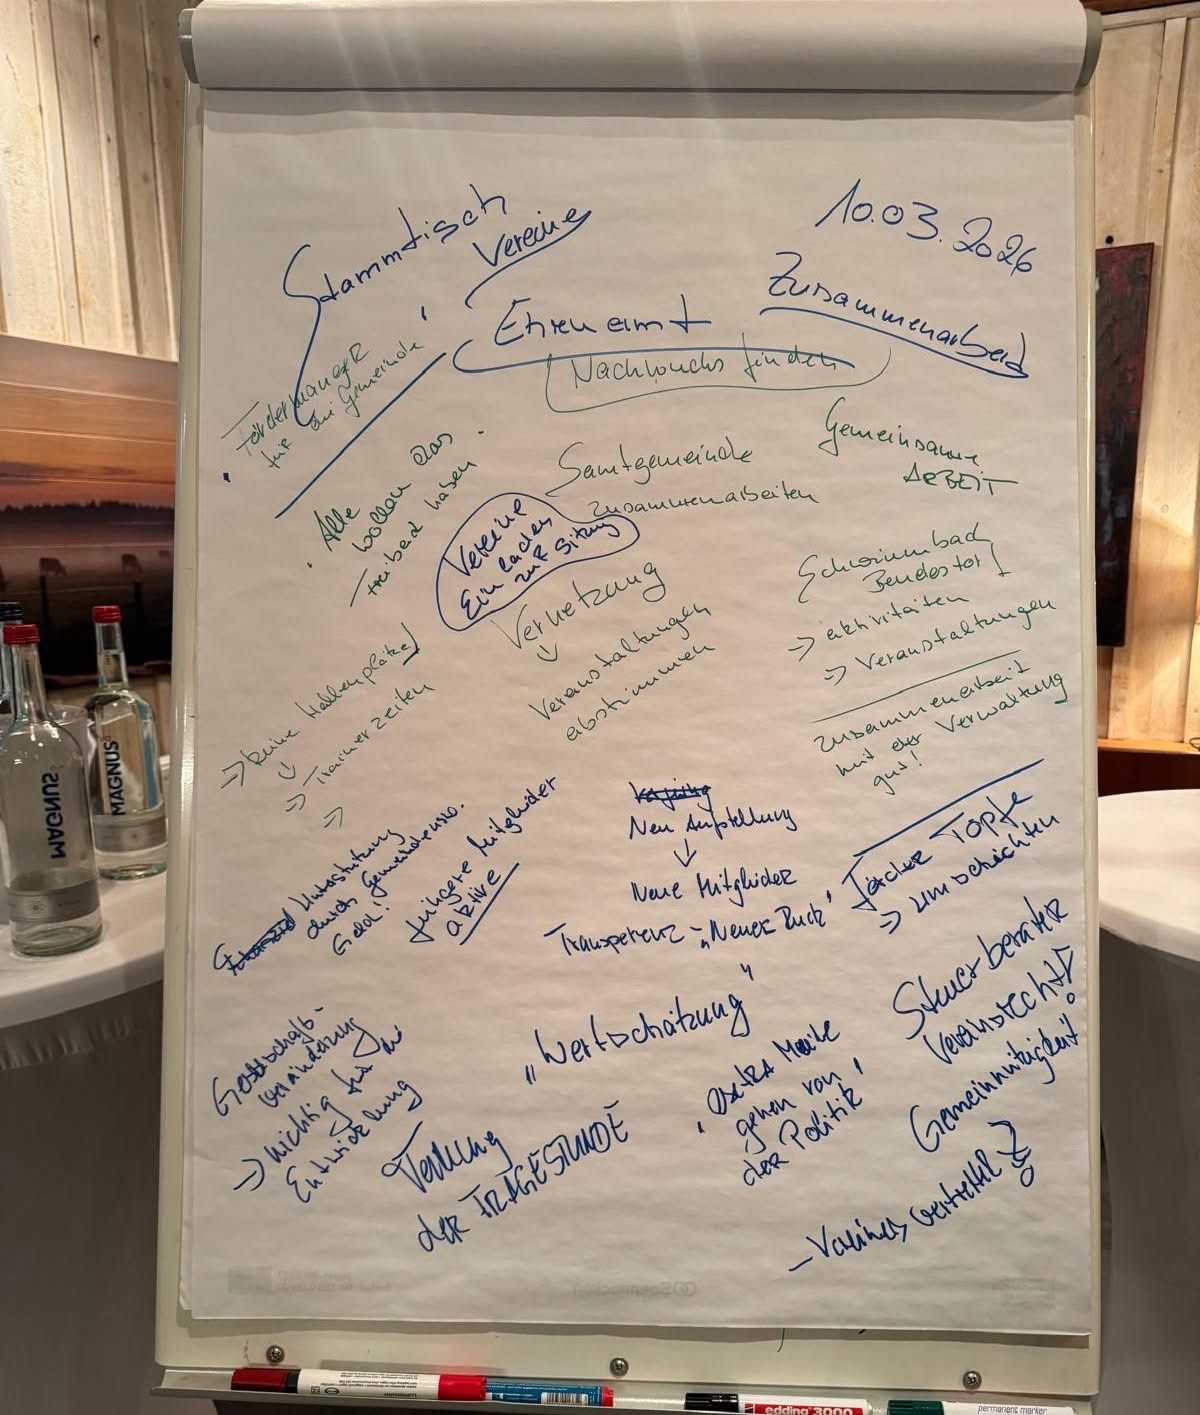 Stammtisch
Vereine
10.03.2026
Ehrenamt
Zusammenarbeit
Nachwuchs finden
Fördermanager
für die Gemeinde
Alle
wollen das
Freibad haben
Samtgemeinde
zusammenarbeiten
Gemeinsame
ARBEIT
Vereine
Einladen
zur Sitzung
Vernetzung
↓
Veranstaltungen
abstimmen
Schwimmbad
Bendestorf
→ aktivitäten
→ Veranstaltungen
zusammenarbeit
mit der Verwaltung
gut!
→ keine Hallenplätze!
↓
→ Trainerzeiten
→
Unterstützung
durch Gemeinde
Geld!
jüngere Mitglieder
aktive
Neu Aufstellung
↓
Neue Mitglieder
Transparenz - „Neuer Ruck"
Förder Töpfe
→ umschichten
„Wertschätzung"
Steuerberater
Vereinsrecht!
Gemeinnützigkeit
- Vereinsvertreter
Gesellschafts-
veränderung
→ wichtig für die
Entwicklung
Trennung
der FRAGESTUNDE
extra Meile
gehen von
der Politik
MAGNUS
MAGNUS
edding 3000
permanent marker